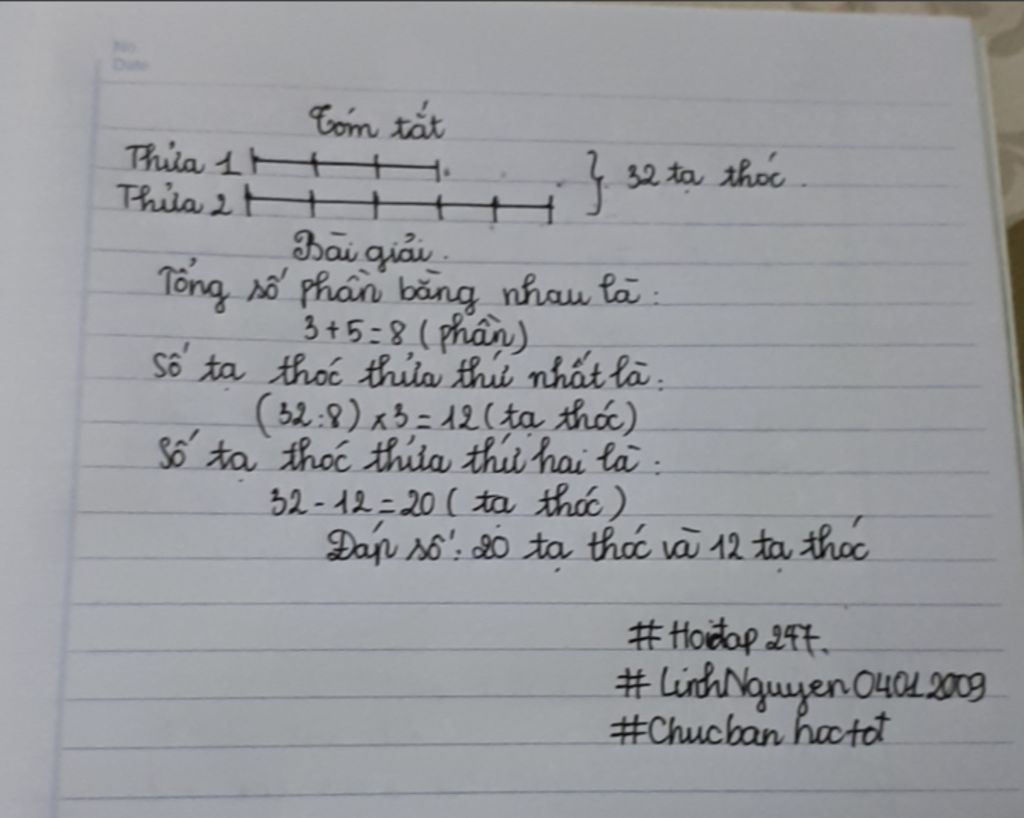 No.
Date
Tóm tắt
Thửa 1
} 32 tạ thóc.
Thửa 2
Bài giải.
Tổng số phần bằng nhau là:
3 + 5 = 8 (phần)
Số tạ thóc thửa thứ nhất là:
(32:8) x 3 = 12 (tạ thóc)
Số tạ thóc thửa thứ hai là:
32 - 12 = 20 (tạ thóc)
Đáp số: 20 tạ thóc và 12 tạ thóc
#Hoidap 247.
#LinhNguyen04012009
#Chucban hoctot